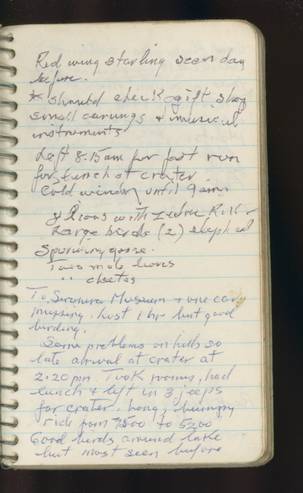 Red wing starling seen day
before.
* should check gift shop
small carvings & musical
instruments
Left 8.15am for fast run
for lunch at crater.
Cold window until 9am
4 lions with Zebra Kill -
Large birds (2) elephant
Spurwing goose.
Two male lions
" cheetas
To Museum & one car
missing. Lost 1 hr but good
birding.
Some problems on hills so
late arrival at crater at
2.20pm Took rooms, had
lunch & left in 3 jeeps
for crater. Long, bumpy
ride from 7500 to 5200
Good birds around lake
but most seen before